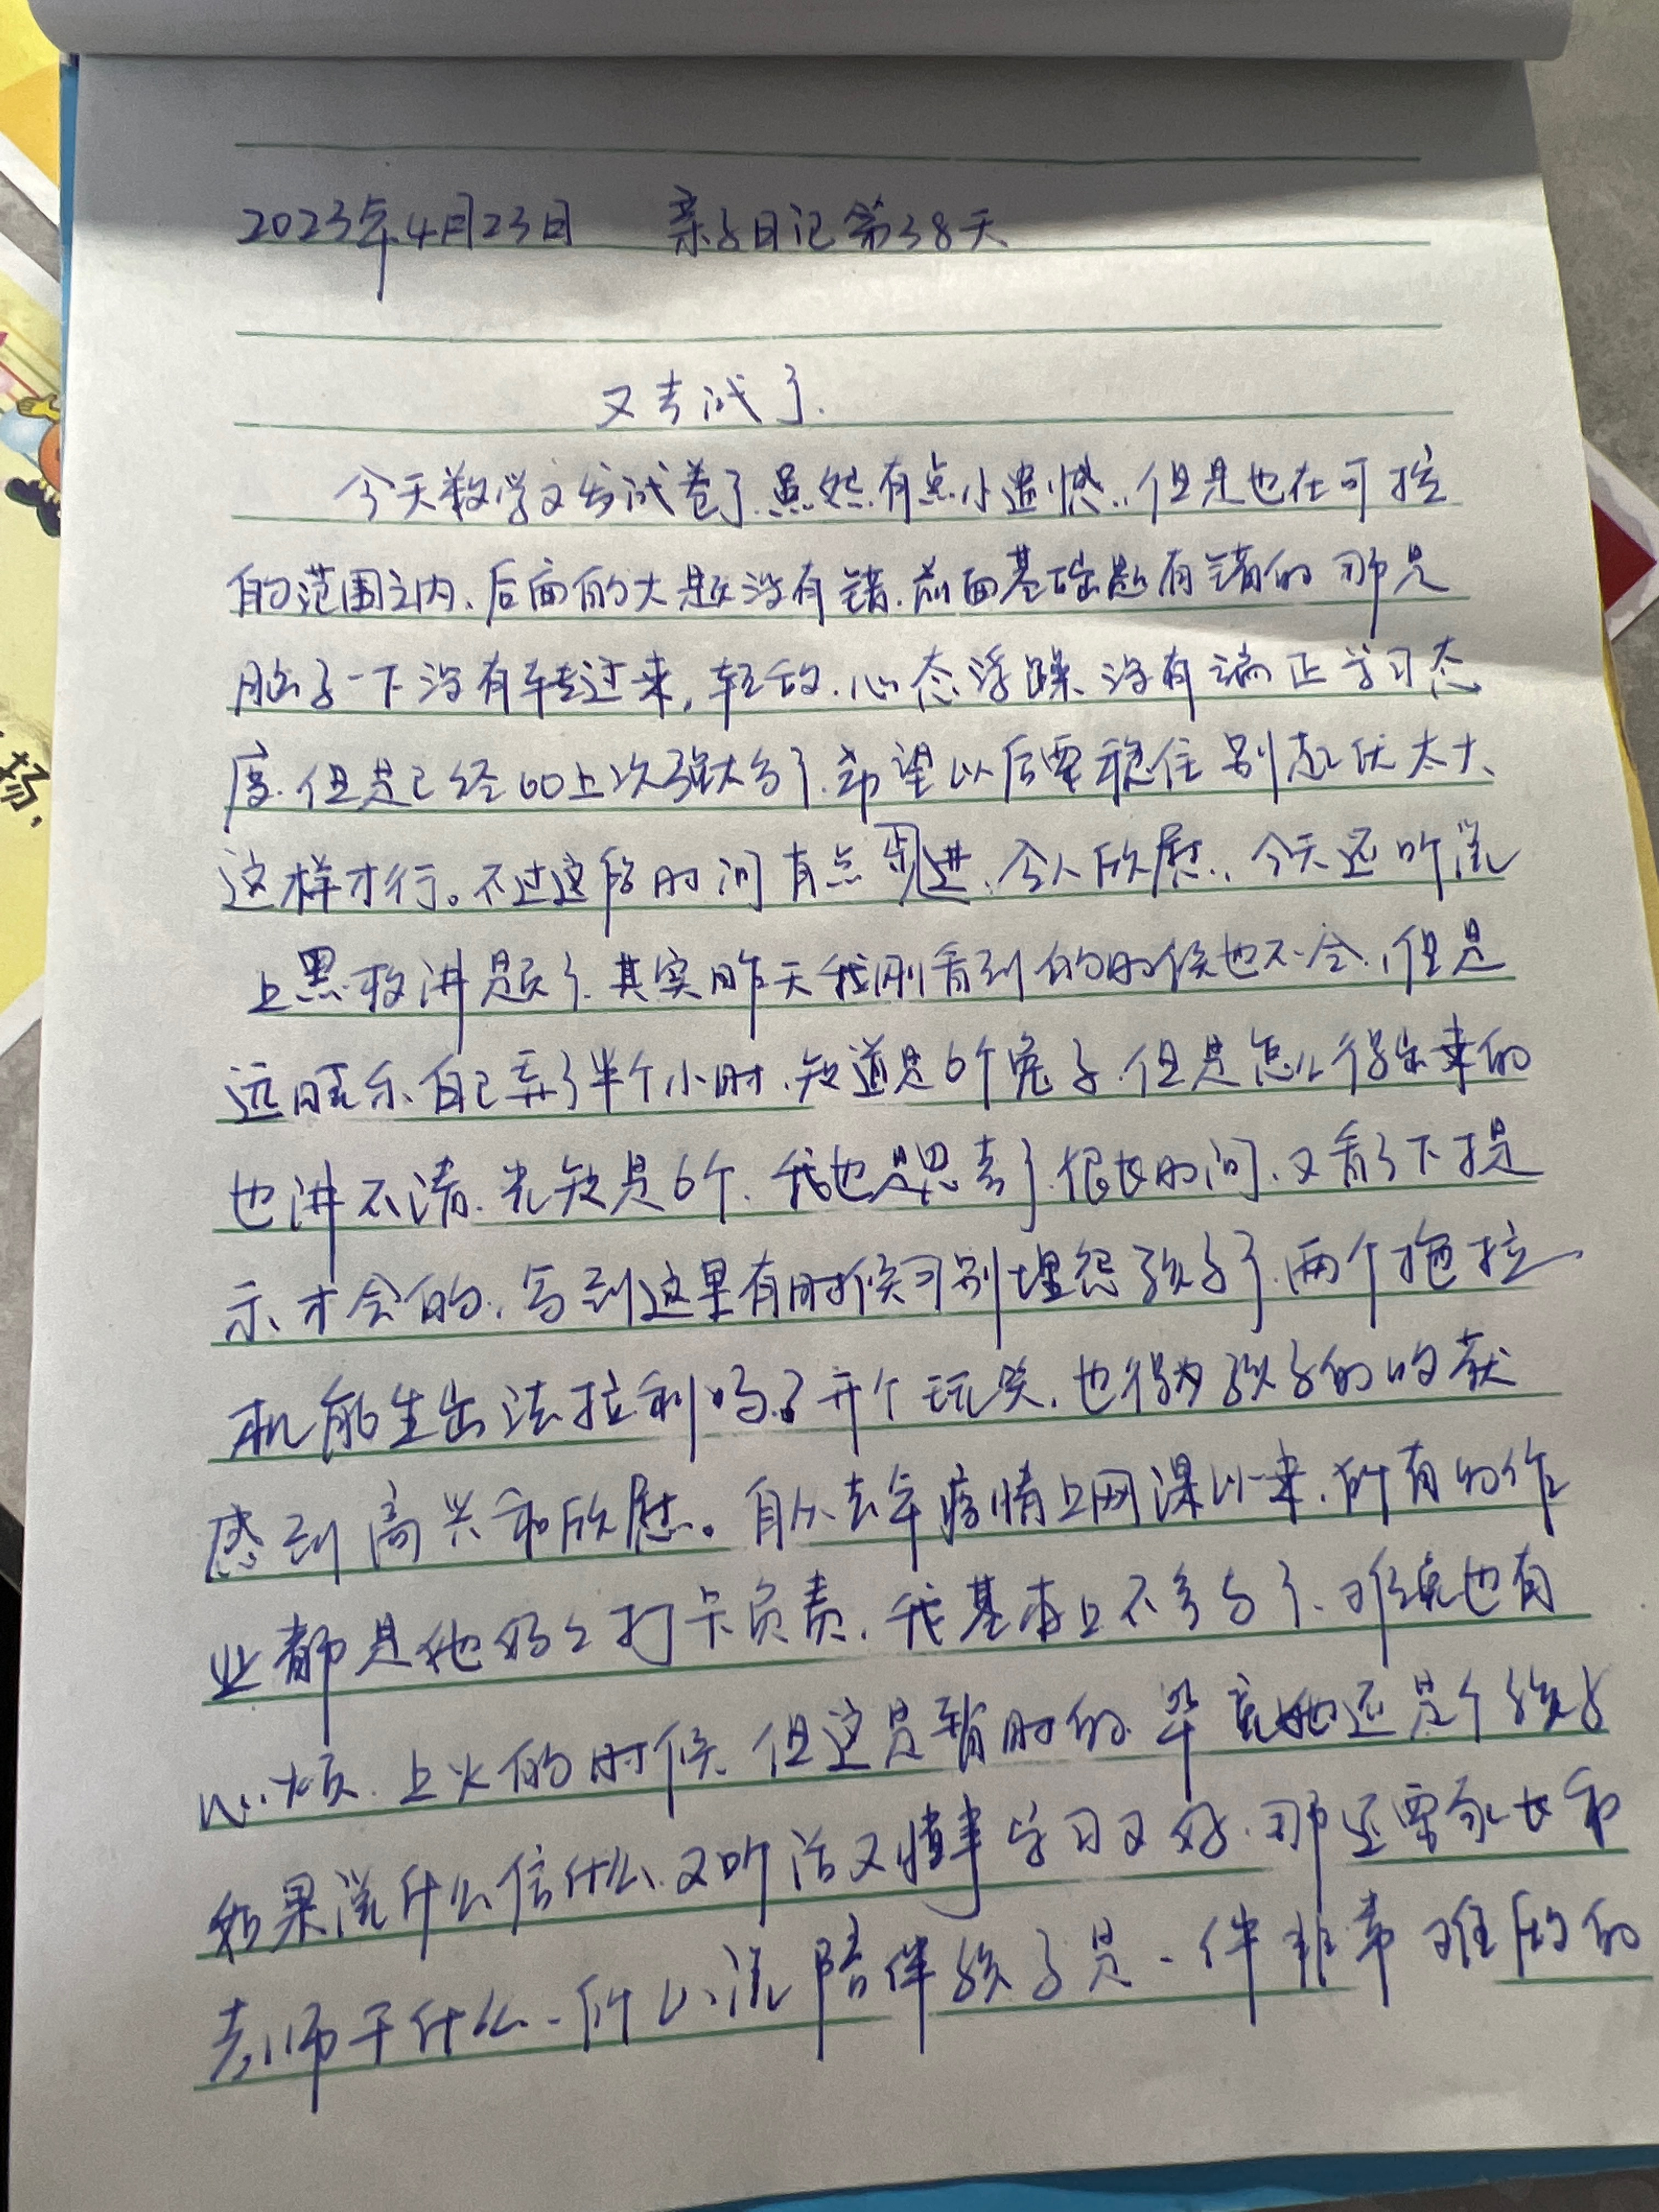 2023年4月23日 亲子日记第38天
又考试了.
今天数学又发试卷了.虽然.有点小遗憾..但是也在可控
的范围之内、后面的大题没有错.前面基础题有错的那是
脑子一下没有转过来,轻敌.心态浮躁、没有端正学习态
度.但是已经比上次强太多了.希望以后要稳住别起伏太大、
这样才行。不过这段时间有点进步、令人欣慰.、今天还听说
上黑板讲题了.其实昨天我刚看到的时候也不会.但是
自己弄了半个小时.知道是6个兔子.但是怎么得出来的
也讲不清.光知是6个.我也是思考了很长时间.又看了下提
示才会的.写到这里有时候可别埋怨孩子了.两个拖拉
机能生出法拉利吗?开个玩笑.也得为孩子的收获
感到高兴和欣慰。自从去年疫情上网课以来.所有的作
业都是他妈妈打卡负责.我基本上不参与了.难免也有
心烦.上火的时候.但这是暂时的.毕竟她还是个孩子
如果说什么信什么.又听话又懂事学习又好.那还要家长和
老师干什么.所以说陪伴孩子是一件非常难的